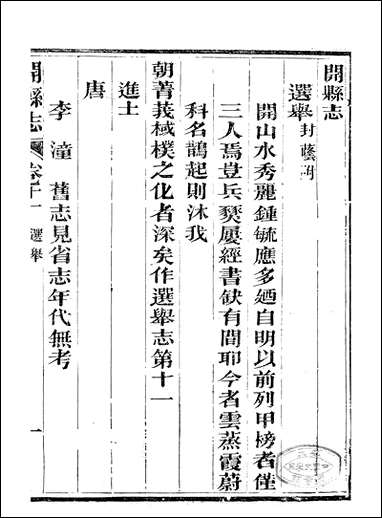 開縣志
選舉 封蔭附
開山水秀麗鍾毓應多廼自明以前列甲榜者僅
三人焉豈兵燹屢經書缺有間耶今者雲蒸霞蔚
科名鵲起則沐我
朝菁莪棫樸之化者深矣作選舉志第十一
進士
唐
李潼 舊志見省志年代無考
開縣志 卷十一 選舉 一